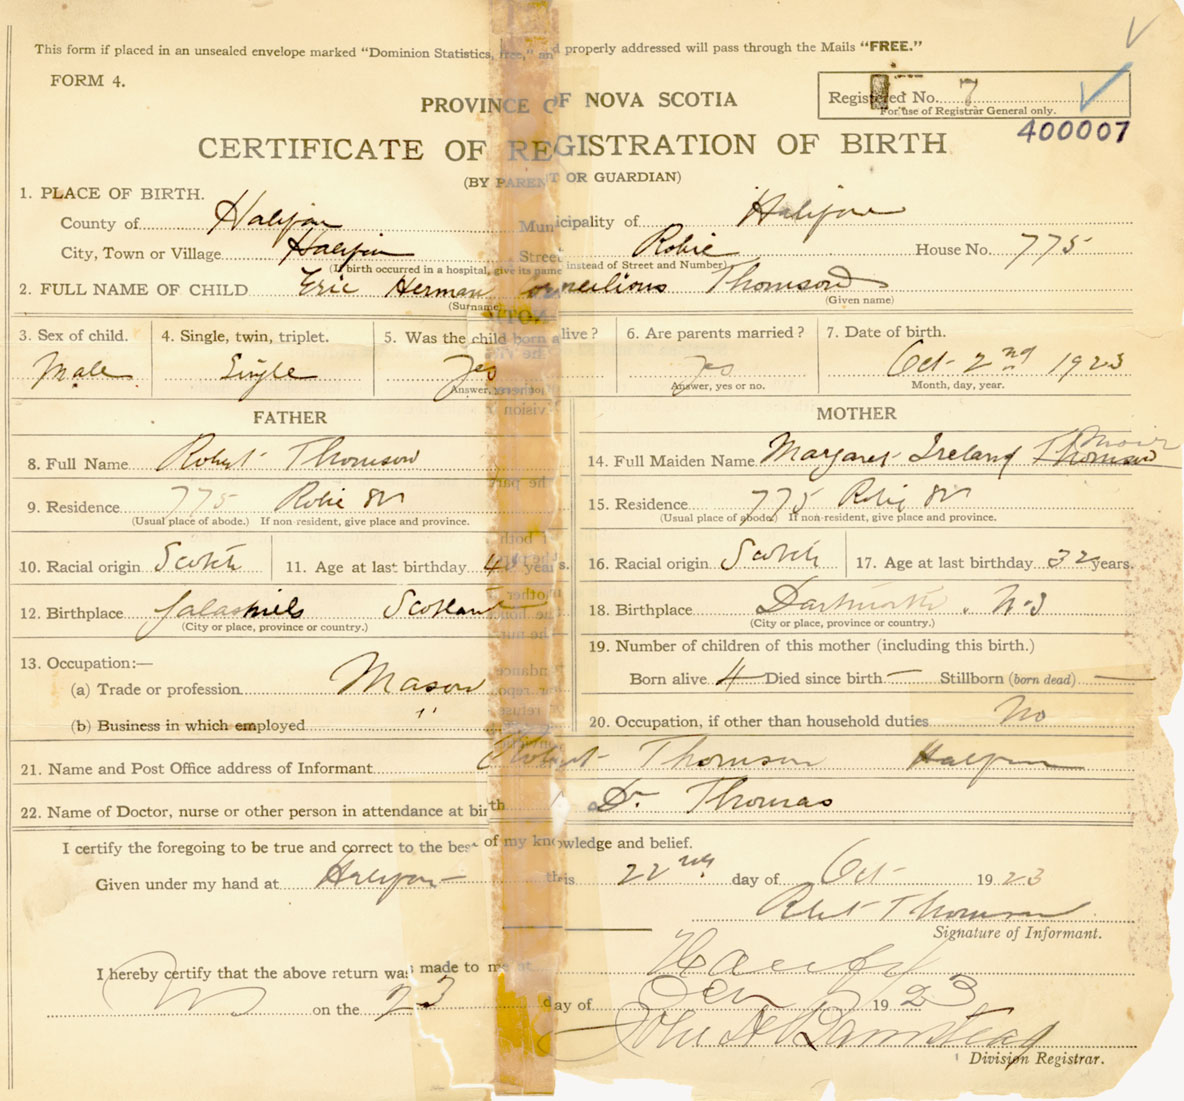 This form if placed in an unsealed envelope marked "Dominion Statistics, free," and properly addressed will pass through the Mails "FREE."
FORM 4.
Registered No. 7
For use of Registrar General only.
PROVINCE OF NOVA SCOTIA
400007
CERTIFICATE OF REGISTRATION OF BIRTH
(BY PARENT OR GUARDIAN)
1. PLACE OF BIRTH.
County of Halifax Municipality of Halifax
City, Town or Village Halifax Street Robie House No. 775
(If birth occurred in a hospital, give its name instead of Street and Number)
2. FULL NAME OF CHILD Eric Herman Corneilious Thomson
(Surname) (Given name)
3. Sex of child. 4. Single, twin, triplet. 5. Was the child born alive? 6. Are parents married? 7. Date of birth.
Male Single Yes Yes Oct 2nd 1923
Answer, yes or no. Answer, yes or no. Month, day, year.
FATHER
8. Full Name Robert Thomson
9. Residence 775 Robie St
(Usual place of abode.) If non-resident, give place and province.
10. Racial origin Scotch 11. Age at last birthday years.
12. Birthplace Galashiels Scotland
(City or place, province or country.)
13. Occupation:—
(a) Trade or profession Mason
(b) Business in which employed "
MOTHER
14. Full Maiden Name Margaret Ireland Thomson Moir
15. Residence 775 Robie St
(Usual place of abode.) If non-resident, give place and province.
16. Racial origin Scotch 17. Age at last birthday 32 years.
18. Birthplace Dartmouth. N.S
(City or place, province or country.)
19. Number of children of this mother (including this birth.)
Born alive 4 Died since birth — Stillborn (born dead) —
20. Occupation, if other than household duties No
21. Name and Post Office address of Informant Robert Thomson Halifax
22. Name of Doctor, nurse or other person in attendance at birth Dr. Thomas
I certify the foregoing to be true and correct to the best of my knowledge and belief.
Given under my hand at Halifax this 22nd day of Oct 1923
Robt Thomson
Signature of Informant.
I hereby certify that the above return was made to me at Halifax
on the 23 day of 1923
John A Barnstead
Division Registrar.